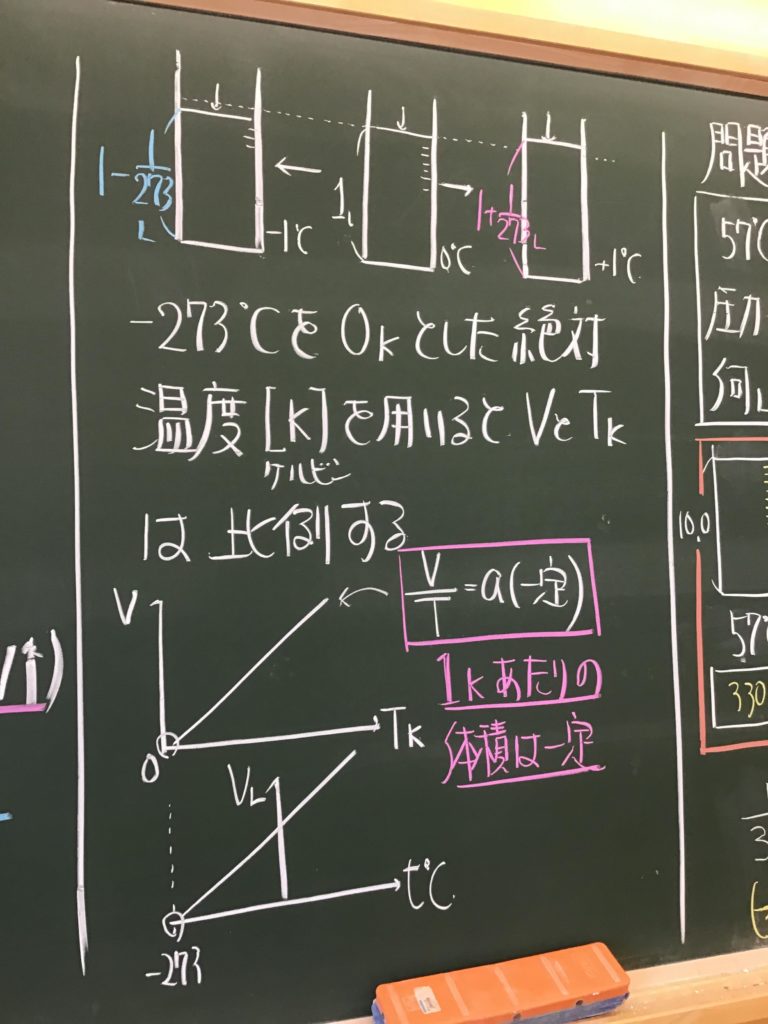 1-1/273 L
-1℃
1L
0℃
1+1/273 L
+1℃
-273℃を0Kとした絶対
温度[K]を用いるとVとTK
ケルビン
は比例する
V
0
TK
V/T=a(一定)
1Kあたりの
体積は一定
VL
t℃
-273
問題
57℃
圧力
何L
10.0
57℃
330